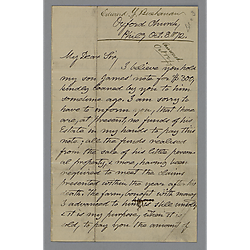 Edward Y. Buchanan
Oxford Church,
Phila. Oct. 28/72
My Dear Sir,
I believe you hold
my son James' note for $300,
kindly loaned by you to him
someone years ago to him. I am sorry to
have to inform you, that there
are, at present, no funds of his
Estate in my hands to pay this
note; all the funds realized
from the sale of his little person-
al property, & more, having been
required to meet the claims
presented within the year after his
death; the farm, bought with money
I advanced to him is still unsold,
& it is my purpose, when it is
sold, to pay you the amount of